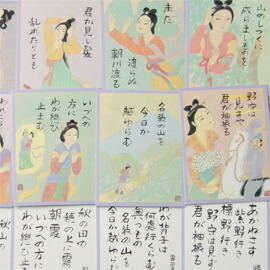 山のしづくに
成らましものを
未だ
渡らぬ
朝川渡る
君が見し髪
乱れたりとも
野守は
見ずや
君が袖振る
名張の山を
今日か
越ゆらむ
いづへの
方に
わが恋ひ
止まむ
あかねさす
紫野行き
標野行き
野守は見ず
君が袖振る
わが背子は
何処行くらむ
奥つもの
名張の山を
今日か越ゆ
秋の田の
穂の上に霧
朝霞
いつへの方に
わが恋ひ止
秋山